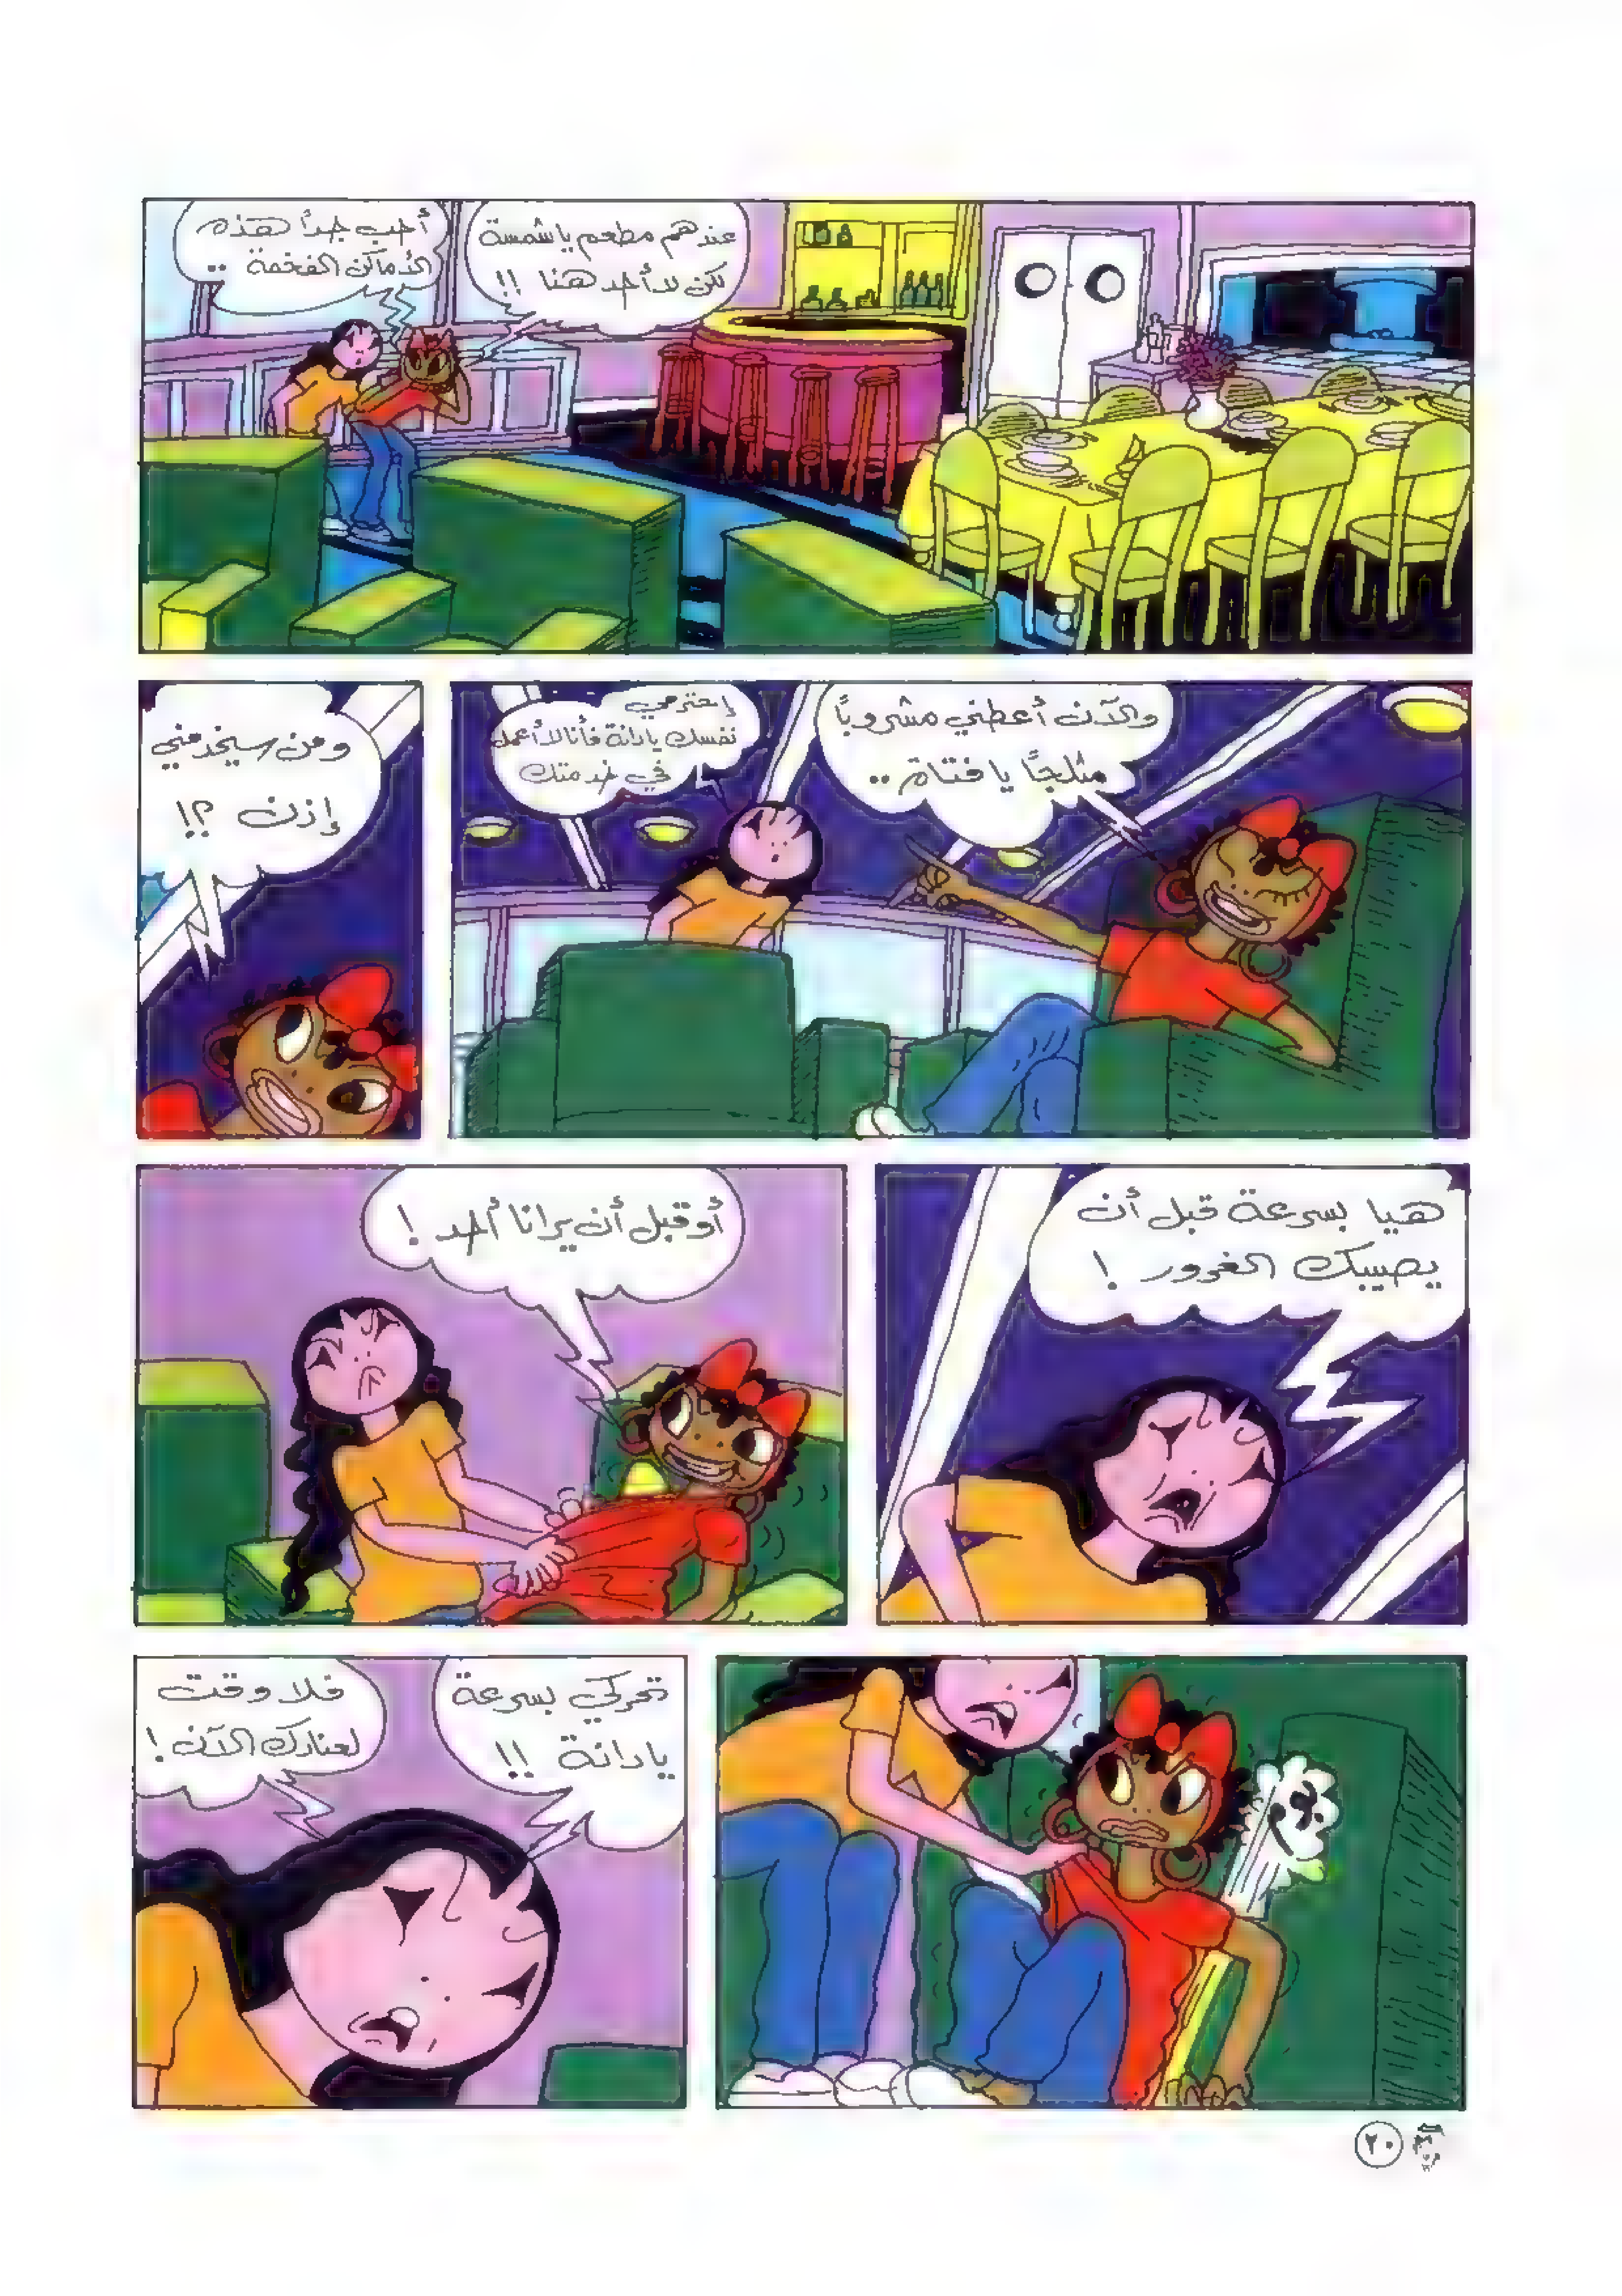 عندهم مطعم يا شمسة
لكن لا أحد هنا !!
أحب جداً هذه
الأماكن الفخمة ..
والآن أعطني مشروباً
مثلجاً يا فتاة ..
إحترمي
نفسك يا دانة فأنا لا أعمل
في خدمتك
ومن سيخدمني
إذن ؟!
هيا بسرعة قبل أن
يصيبك الغرور !
أو قبل أن يرانا أحد !
تحركي بسرعة
يا دانة !!
فلا وقت
لعنادك الآن !
٢٠